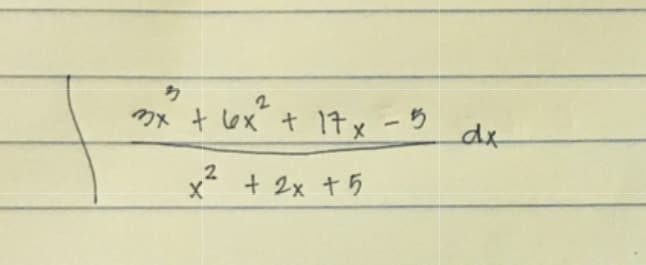 ∫ (3x³ + 6x² + 17x - 5) / (x² + 2x + 5) dx